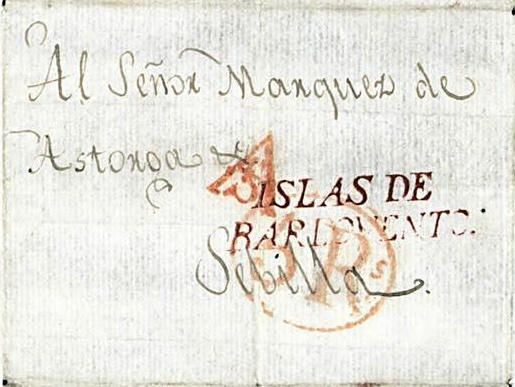 Al Señor Marquez de
Astorga &.
A
ISLAS DE
BARLOVENTO.
Sebilla.
Rs